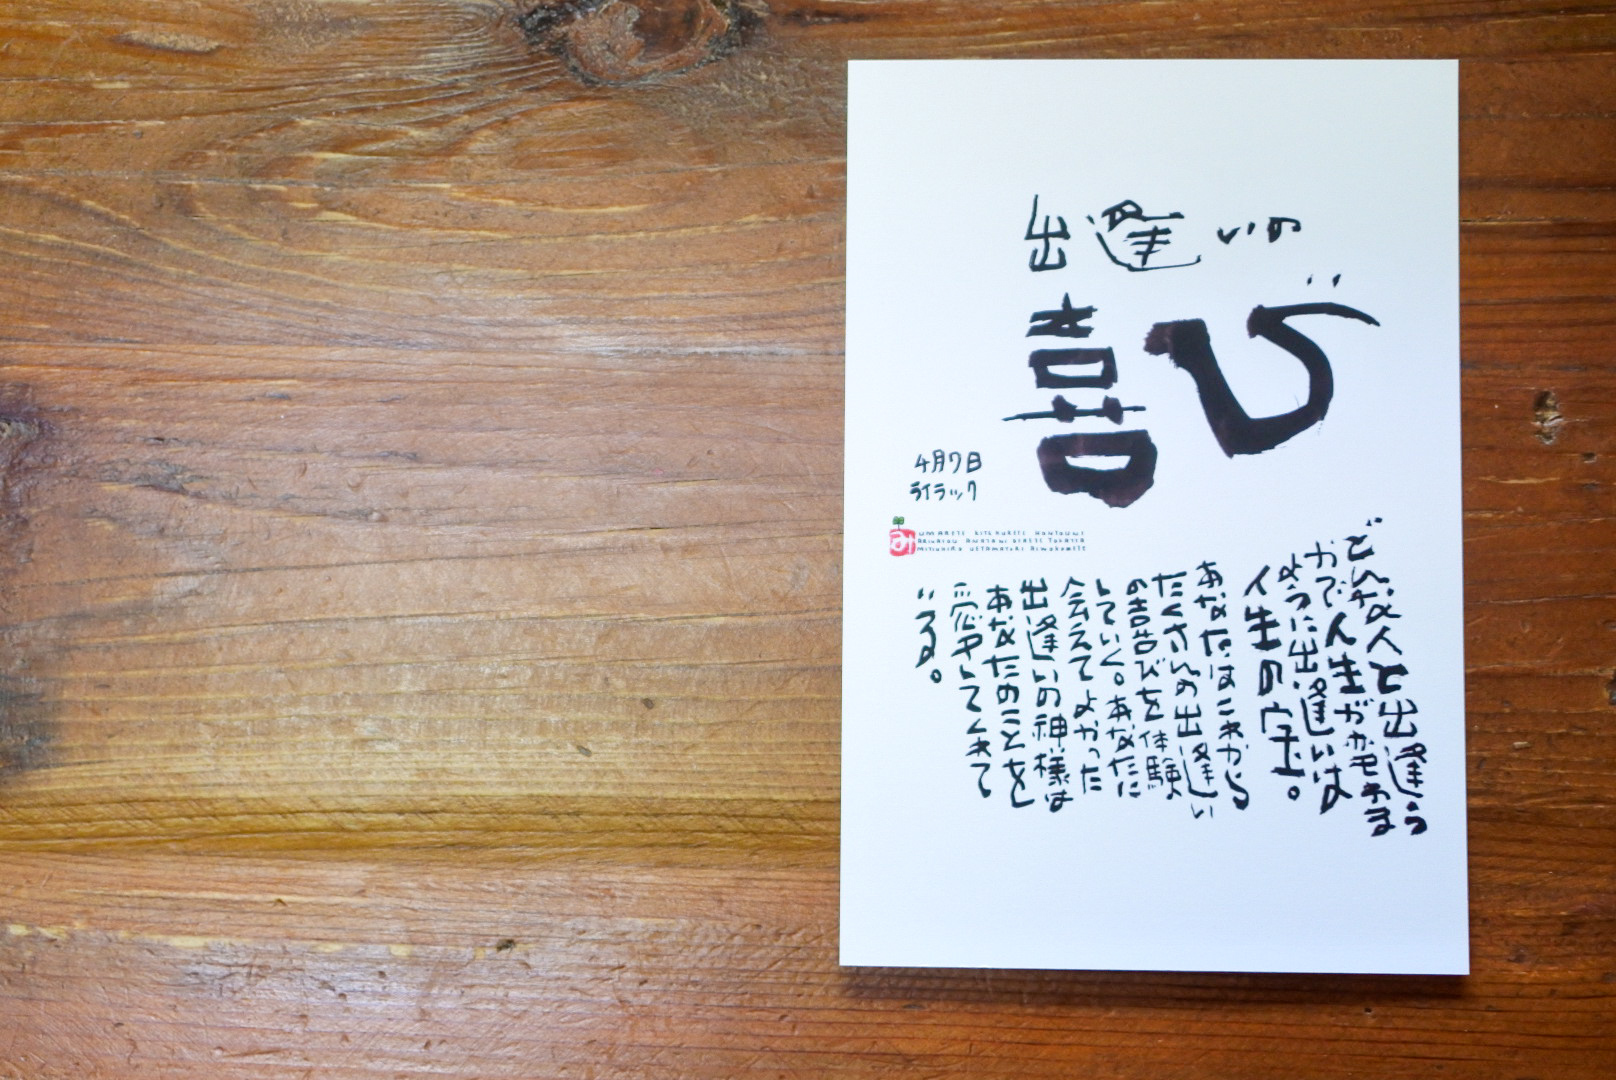 出逢いの
喜び
4月7日
ライラック
み
どんな人と出逢う
かで人生が
ように出逢いは
人生の宝。
あなたはこれから
たくさんの出逢い
の喜びを体験
していく。あなたに
会えてよかった
出逢いの神様は
あなたのことを
してくれて
いる。